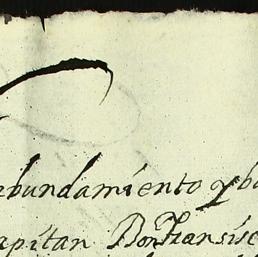 abundamiento y b
apitan Don Fransisc